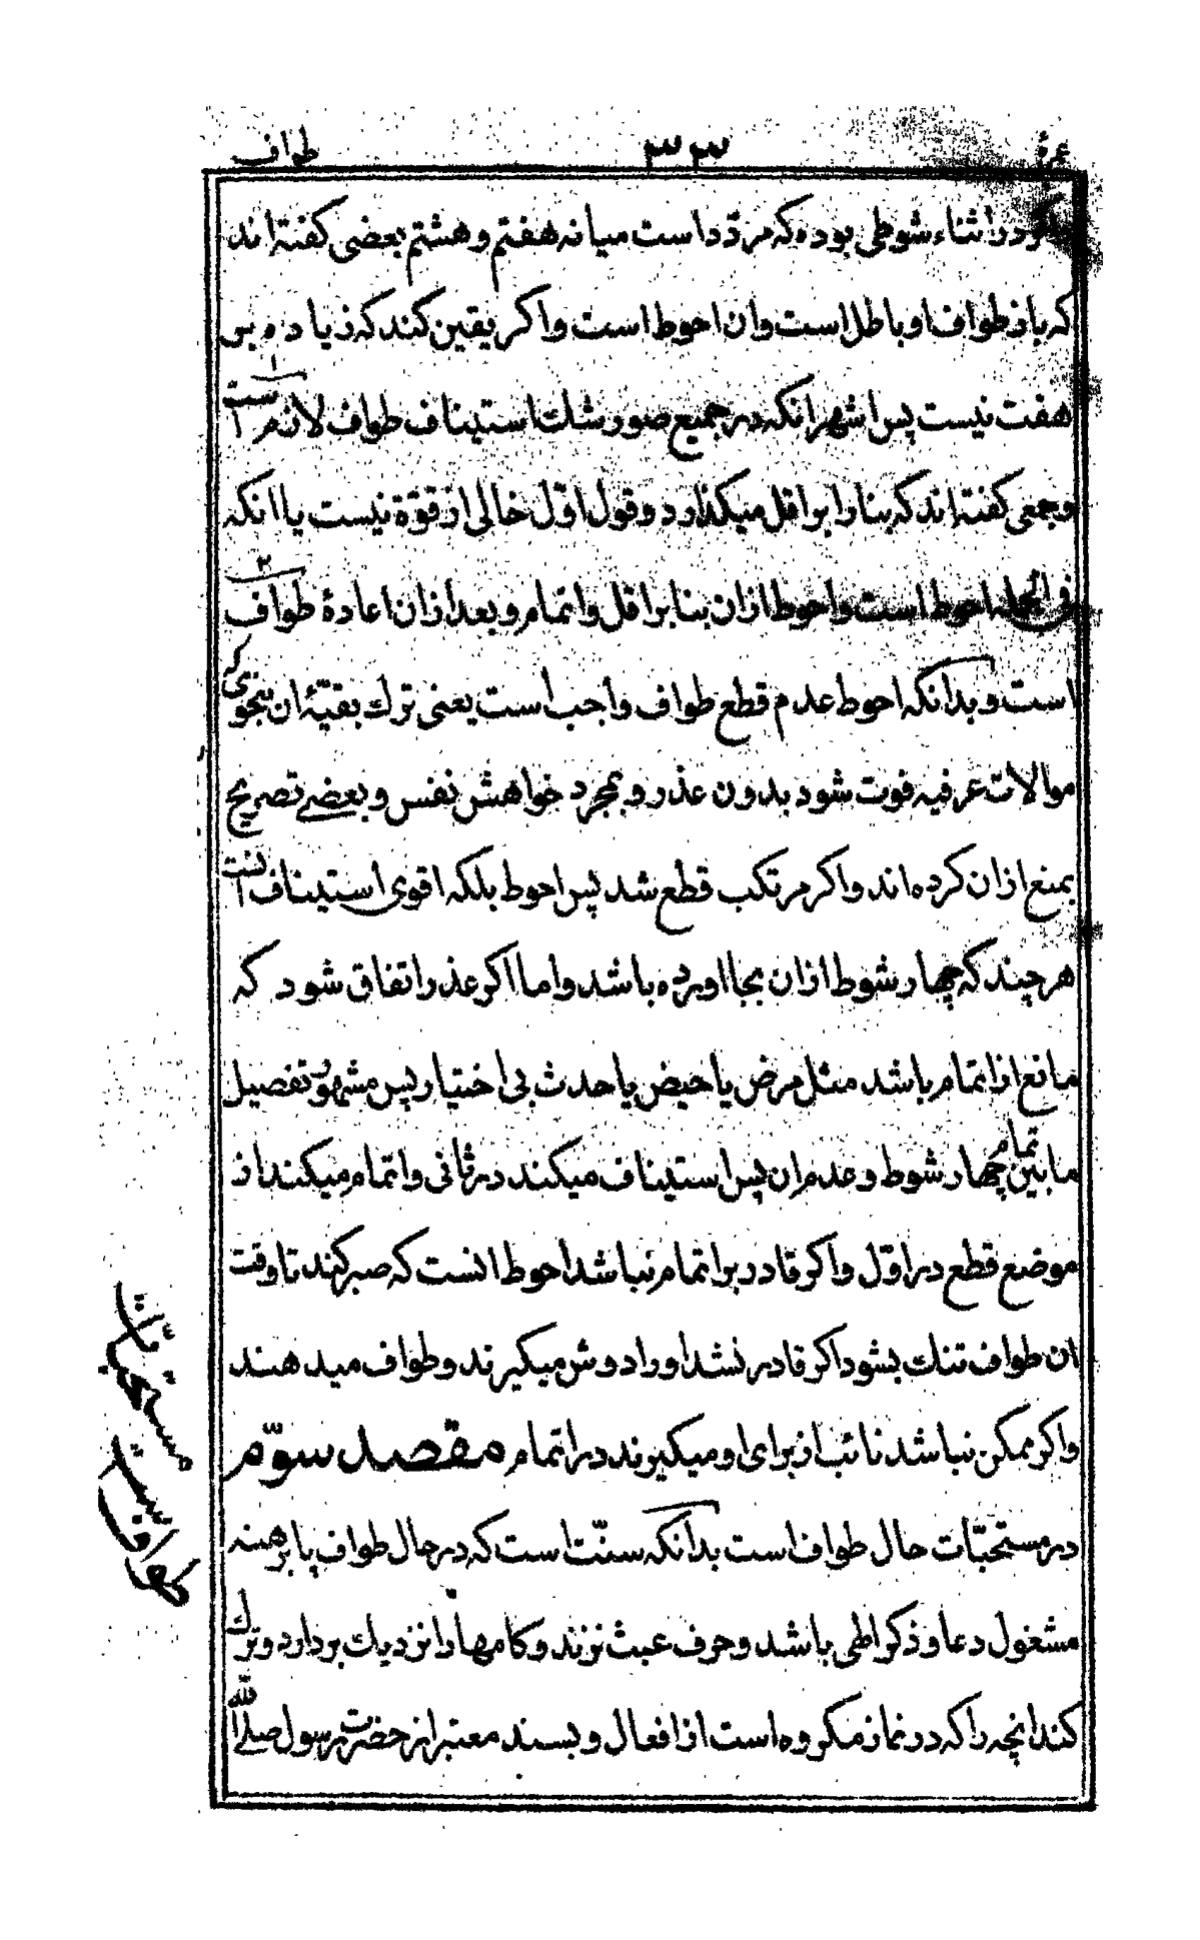 عمرهٔ ۳۳ طواف
و اگر در اثناء شوطی بوده که مردّد است میانه هفتم و هشتم بعضی کفته اند
که باز طواف او باطل است و ان احوط است و اکر یقین کند که زیاده بر
هفت نیست پس اشهر انکه در جمیع صور شك استیناف طواف لازم است
و جمعی کفته اند که بنا را بر اقل میکذارد و قول اوّل خالی از قوّة نیست یا انکه
فی الجمله احوط است و احوط از ان بنا بر اقل و اتمام و بعد از ان اعادهٔ طواف
است و بدانکه احوط عدم قطع طواف واجب است یعنی ترك بقیّهٔ ان بنحوی که
موالات عرفیه فوت شود بدون عذر و بمجرد خواهش نفس و بعضے تصریح
بمنع از ان کرده اند و اکر مرتکب قطع شد پس احوط بلکه اقوی استیناف است
هر چند که چهار شوط از ان بجا اورده باشد و اما اکر عذر اتفاق شود که
مانع از اتمام باشد مثل مرض یا حیض یا حدث بی اختیار پس مشهور تفصیل
ما بین تمام چهار شوط و عدم ان پس استیناف میکند در ثانی و اتمام میکند از
موضع قطع در اوّل و اکر قادر بر اتمام نباشد احوط انست که صبر کند تا وقت
ان طواف تنك بشود اکر قادر نشد او را دوش میکیرند و طواف میدهند
و اکر ممکن نباشد نائب از برای او میکیرند در اتمام مقصد سوّم
در مستحبّات حال طواف است بدانکه سنّت است که در حال طواف پا برهنه
مشغول دعا و ذکر الهی باشد و حرف عبث نزند و کامها را نزدیك بردارد و ترك
کند انچه را که در نماز مکروه است از افعال و بسند معتبر از حضرت رسول صلے الله
مستحبّات
طواف است